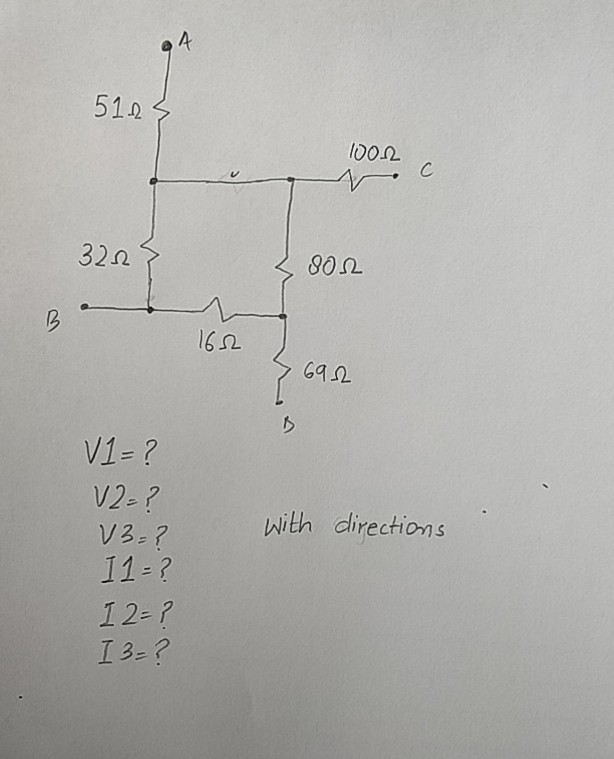 A
51Ω
100Ω
C
32Ω
80Ω
B
16Ω
69Ω
D
V1=?
V2=?
V3=?
With directions
I1=?
I2=?
I3=?